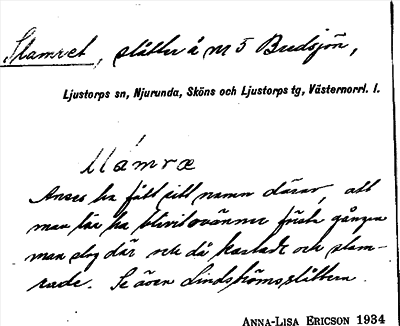 Slamret, slåtter å nr 5 Bredsjön,
Ljustorps sn, Njurunda, Sköns och Ljustorps tg, Västernorrl. l.
Slámræ
Anses ha fått sitt namn därav, att
man lär ha blivit ovänner första gången
man slog där och då kastade och slam-
rade. Se även Lindströmsslåttern.
ANNA-LISA ERICSON 1934